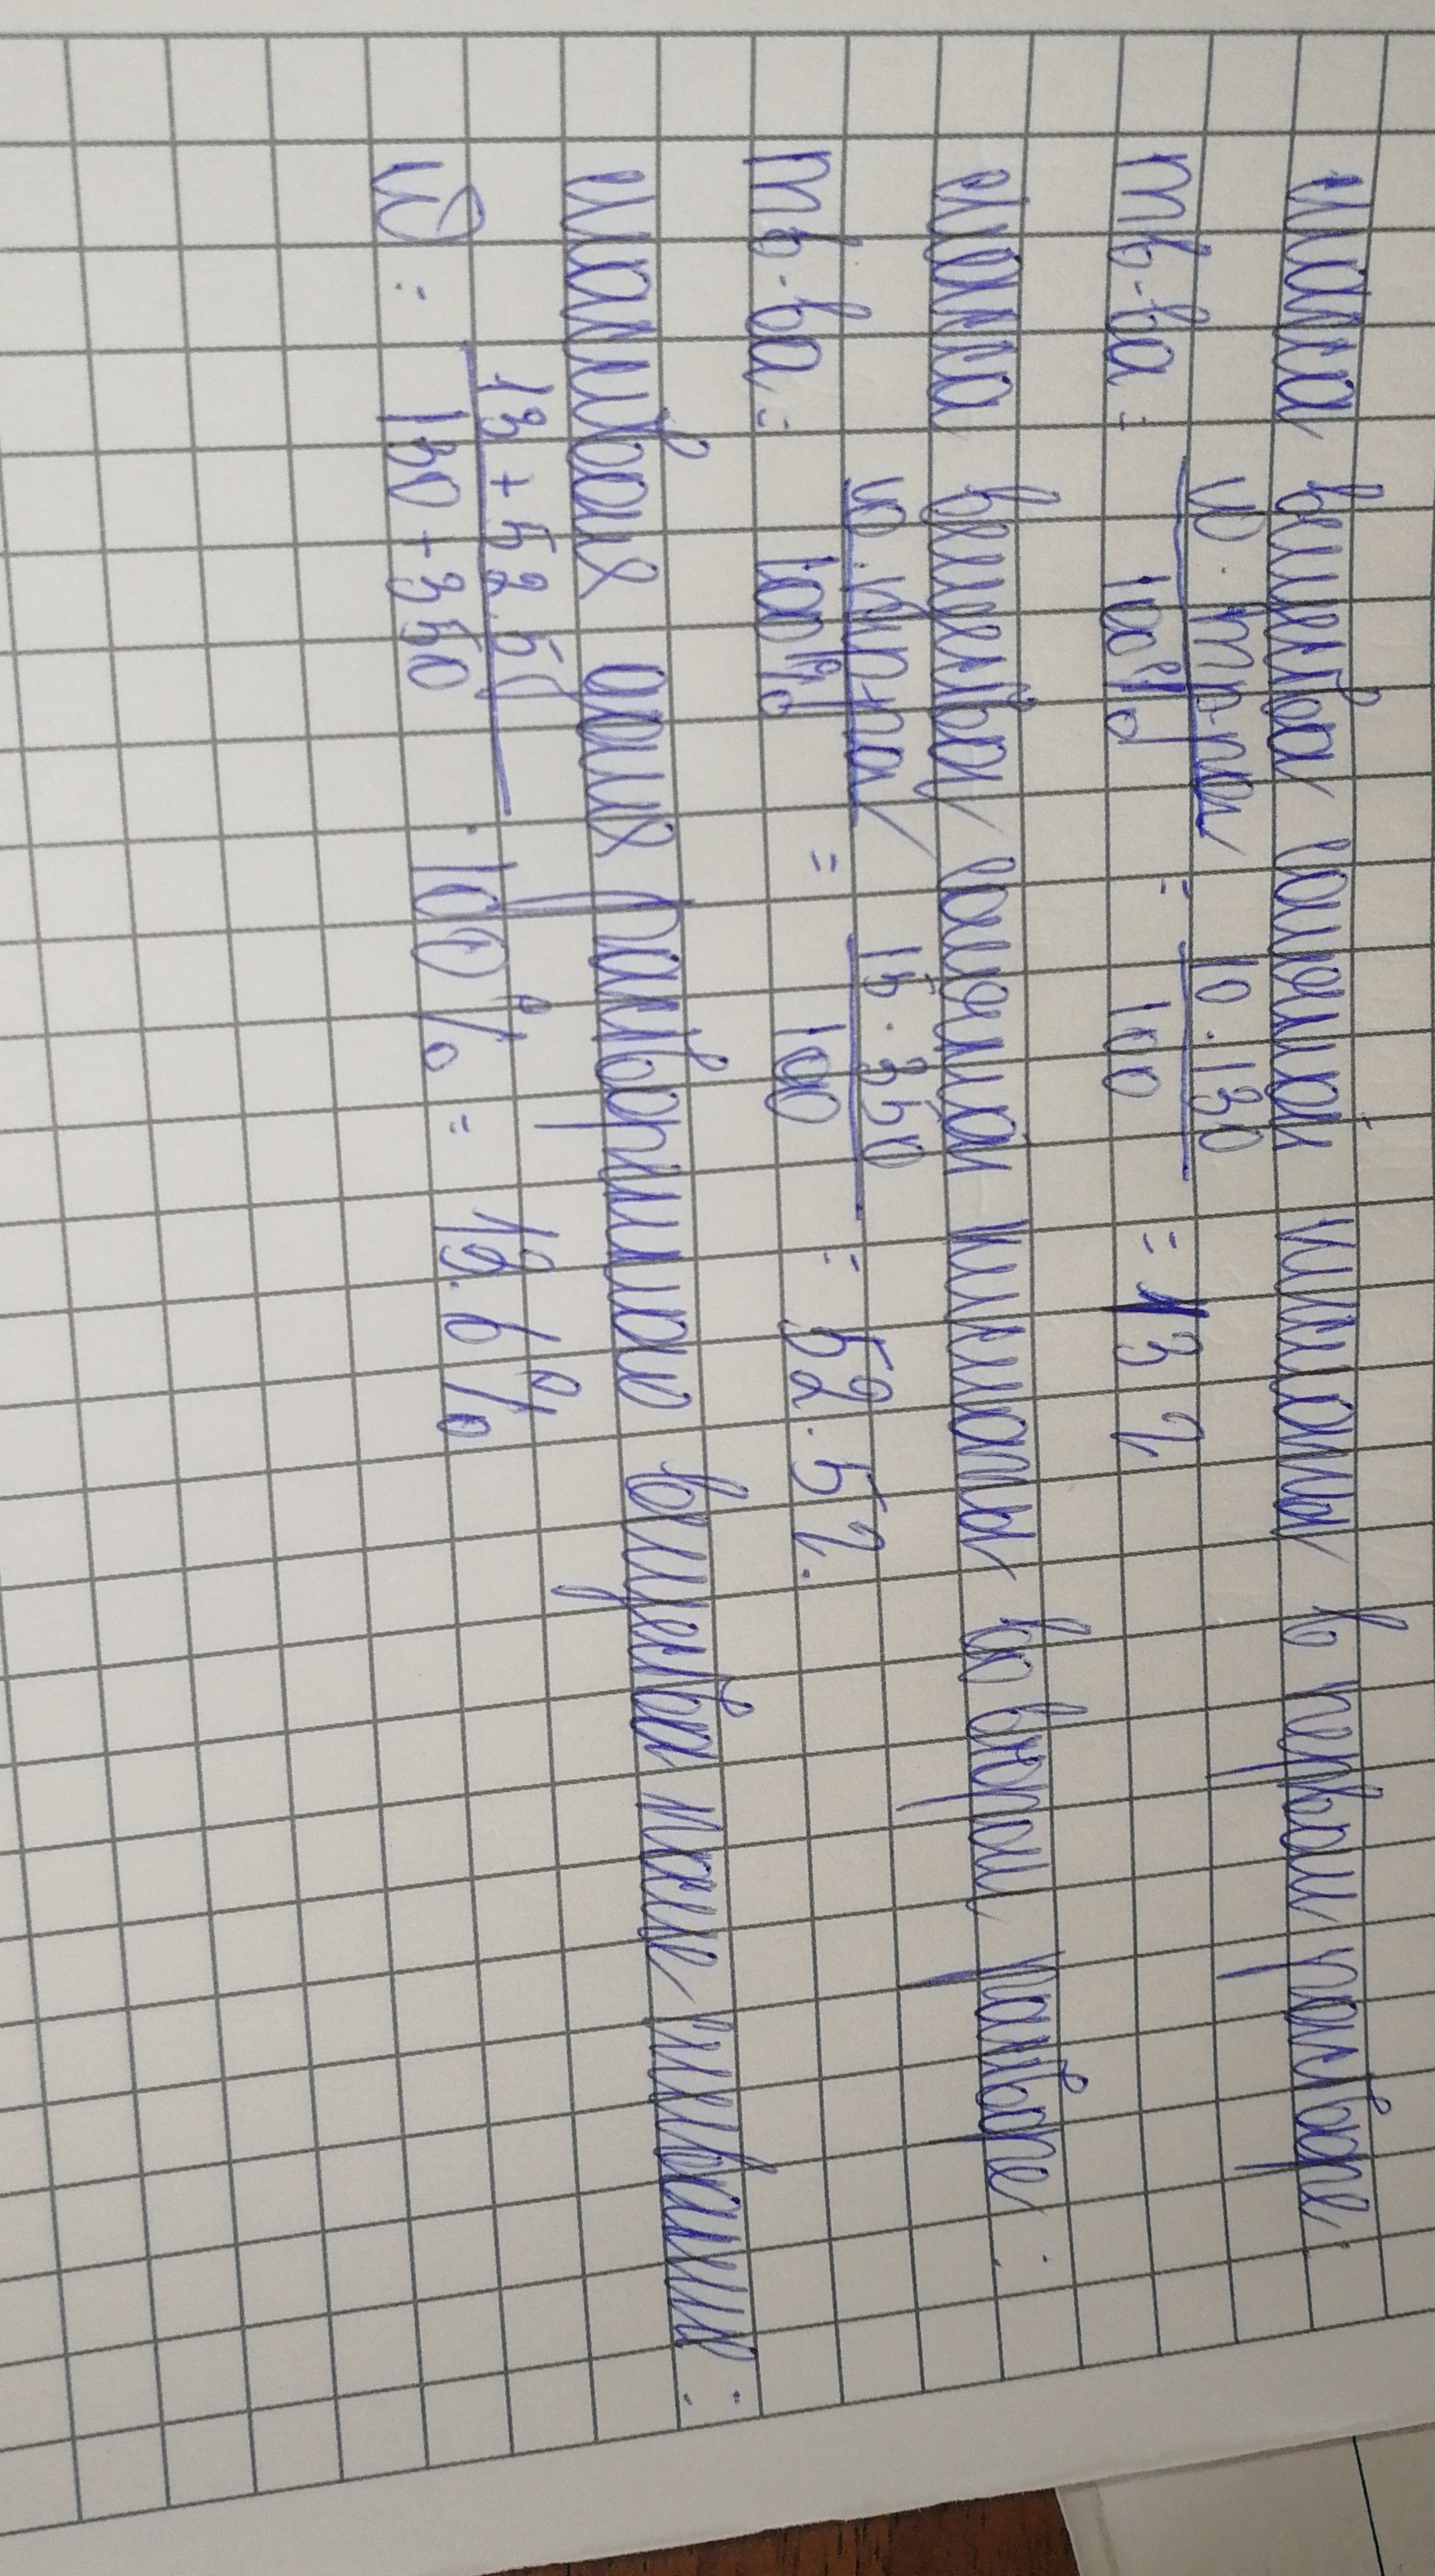 масса вещества соляной кислоты в первом растворе:
mв-ва = w · mр-ра / 100% = 10 · 130 / 100 = 13 г
масса вещества соляной кислоты во втором растворе:
mв-ва = w · mр-ра / 100% = 15 · 350 / 100 = 52.5 г.
растворимого вещества после сливания:
w = 13 + 52.5 / 130 + 350 · 100% = 13.6%